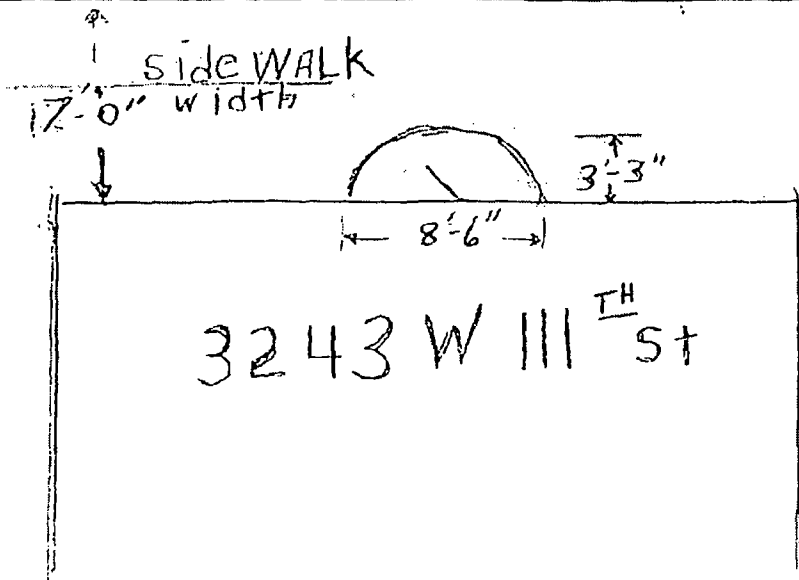 side WALK
17'-0" width
3'-3"
8'-6"
3243 W 111TH St